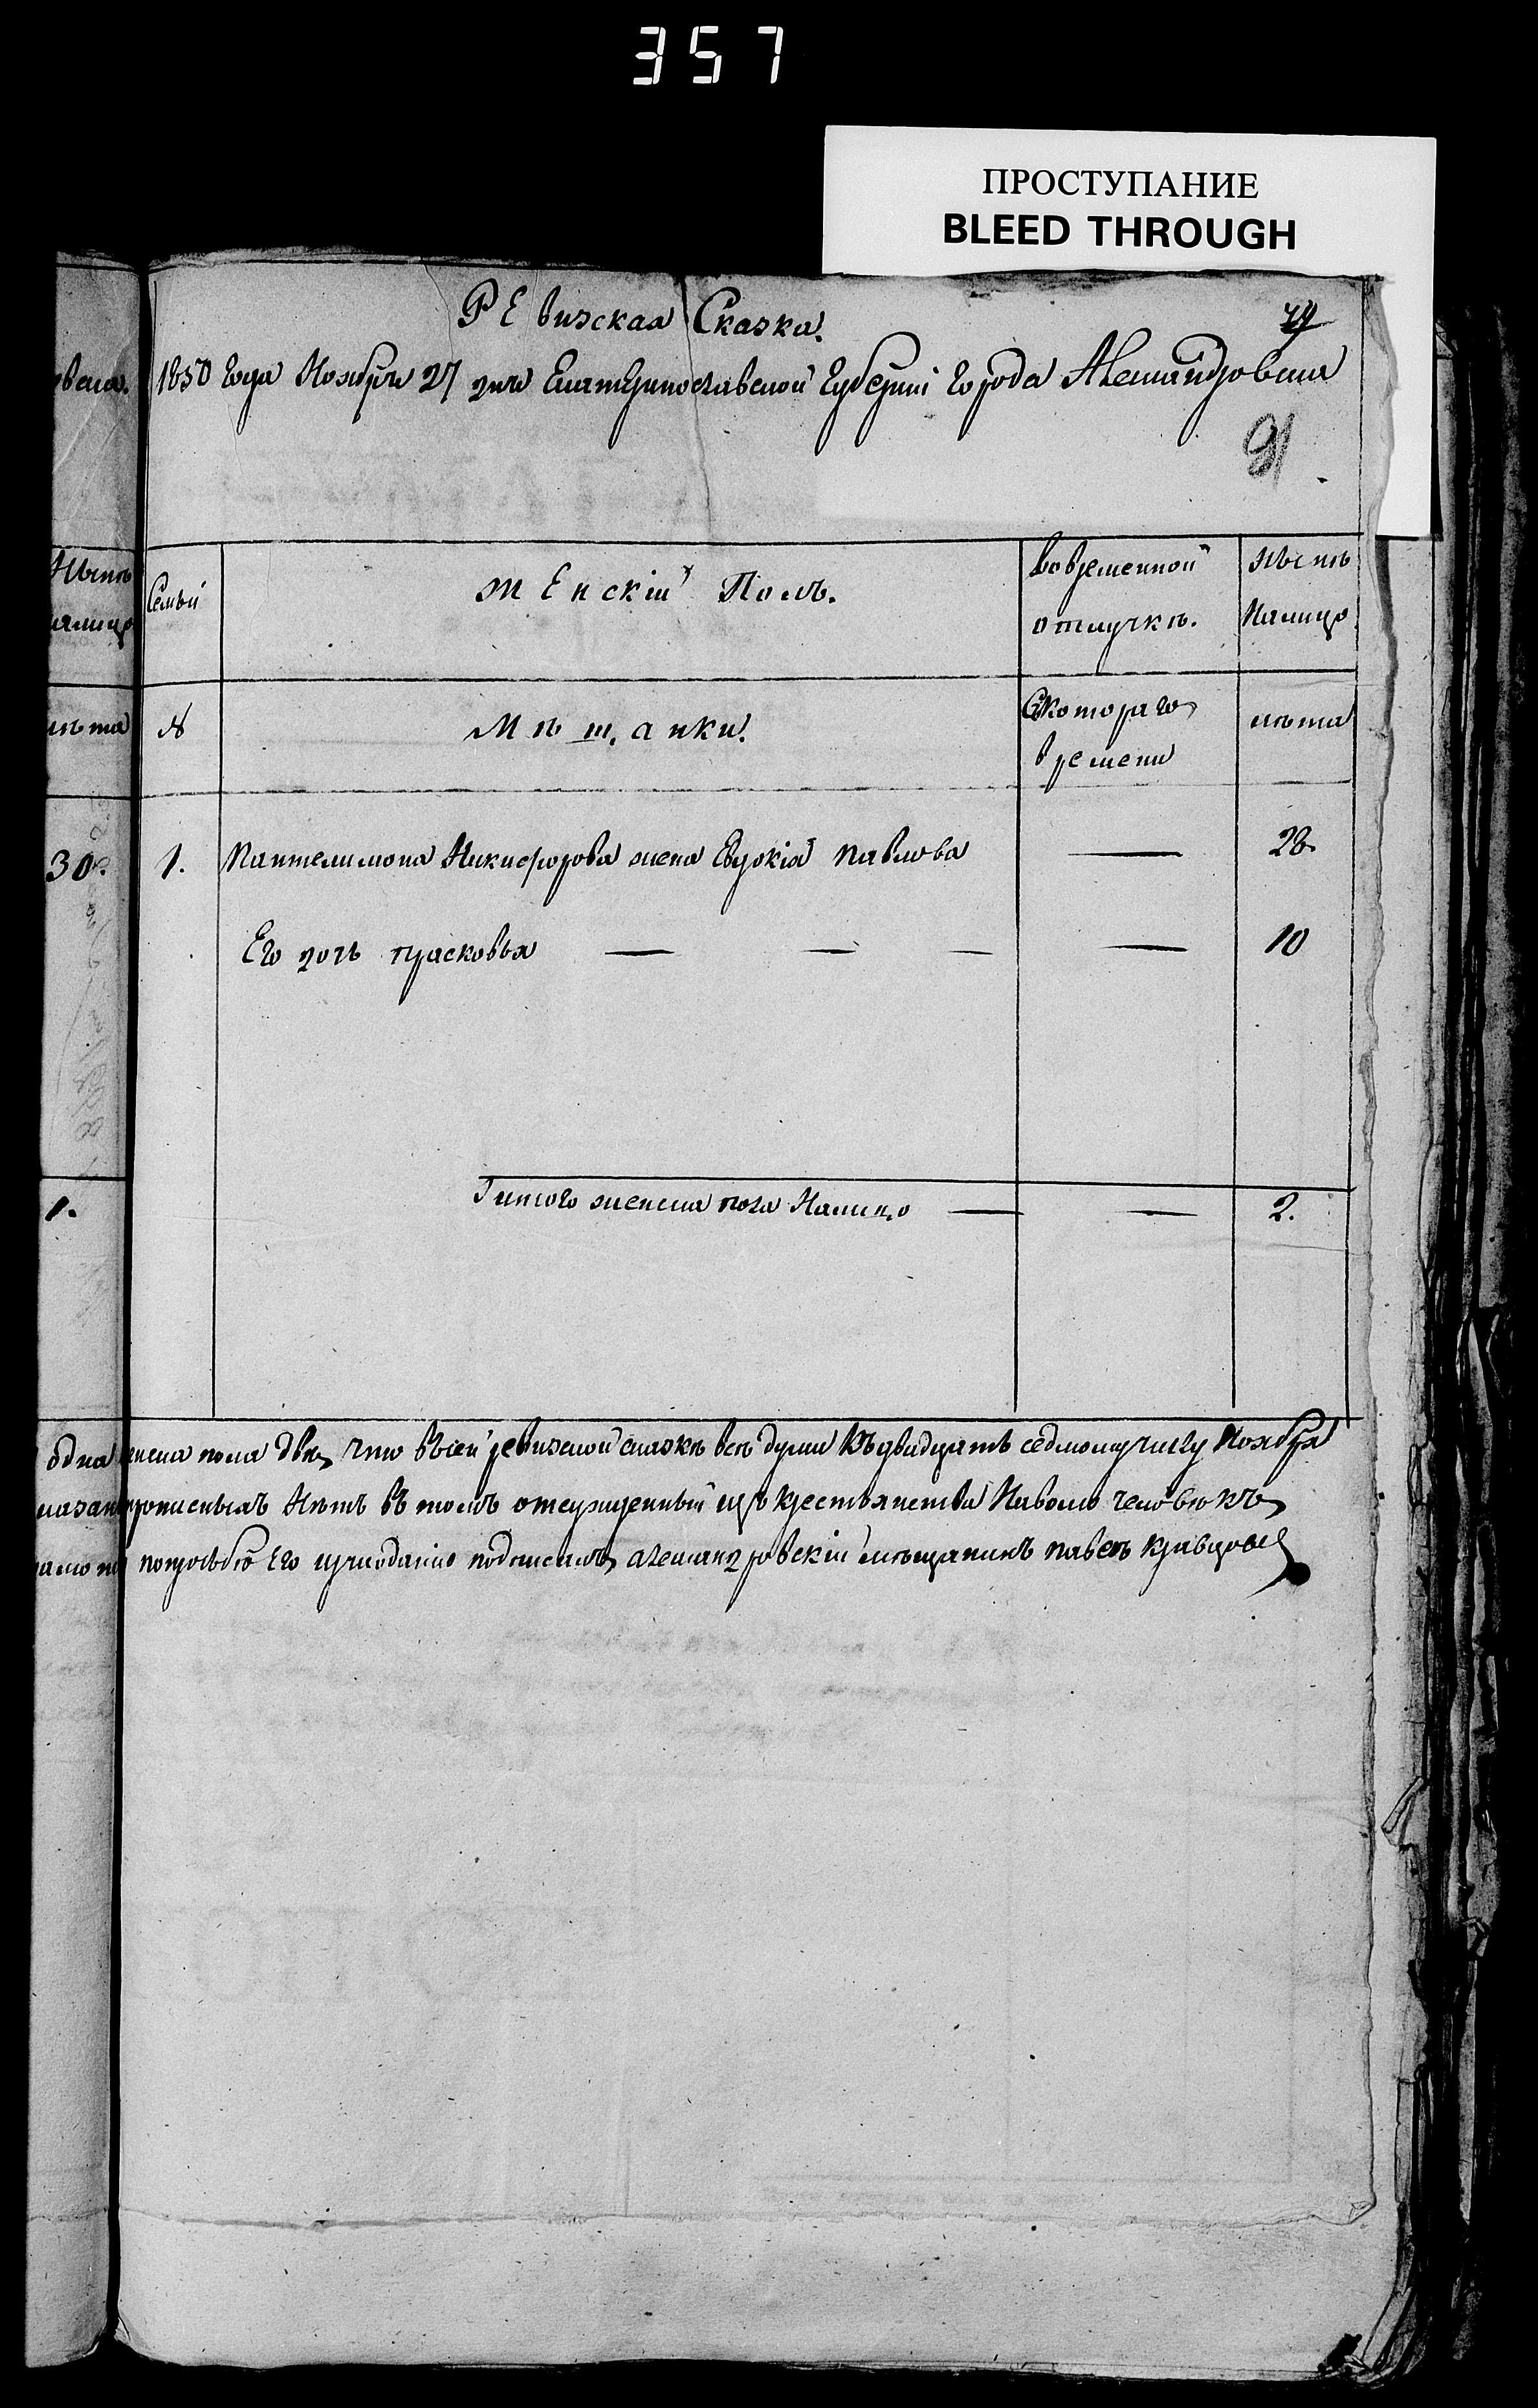 357
ПРОСТУПАНИЕ
BLEED THROUGH
РЕвизская Сказка.
1850 года Ноября 27 дня Екатеринославской Губерніи города Александровска
91
Семьи
жЕнскій Полъ.
вовременной
отлучкѣ.
Нынѣ
Налицо
№
Мѣщанки.
Скотораго
времени
лѣта
30
1. Пантелимона Никифорова жена Евдокія павлова — 28
Его дочь прасковья — — — — 10
1.
Iитого женска пола Налицо — — 2.
одна женска пола двѣ, что въсей ревизской сказкѣ всѣ души Къдвадцать седмомучислу Ноября
прописныхъ Нѣтъ въ томъ отсужденный изъ крестьянства Павелъ человѣкъ
попрозьбѣ Его ирукоданію подписалъ александровскій мѣщанинъ павелъ кравцовъ